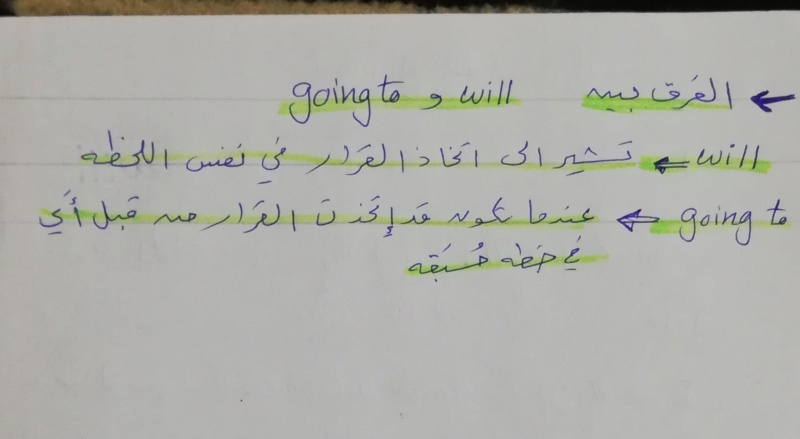 ← الفرق بين will و going to
will ← تشير الى اتخاذ القرار في نفس اللحظه
going to ← عندما يكون قد إتخذت القرار من قبل أي
في خطه مُسبَقه